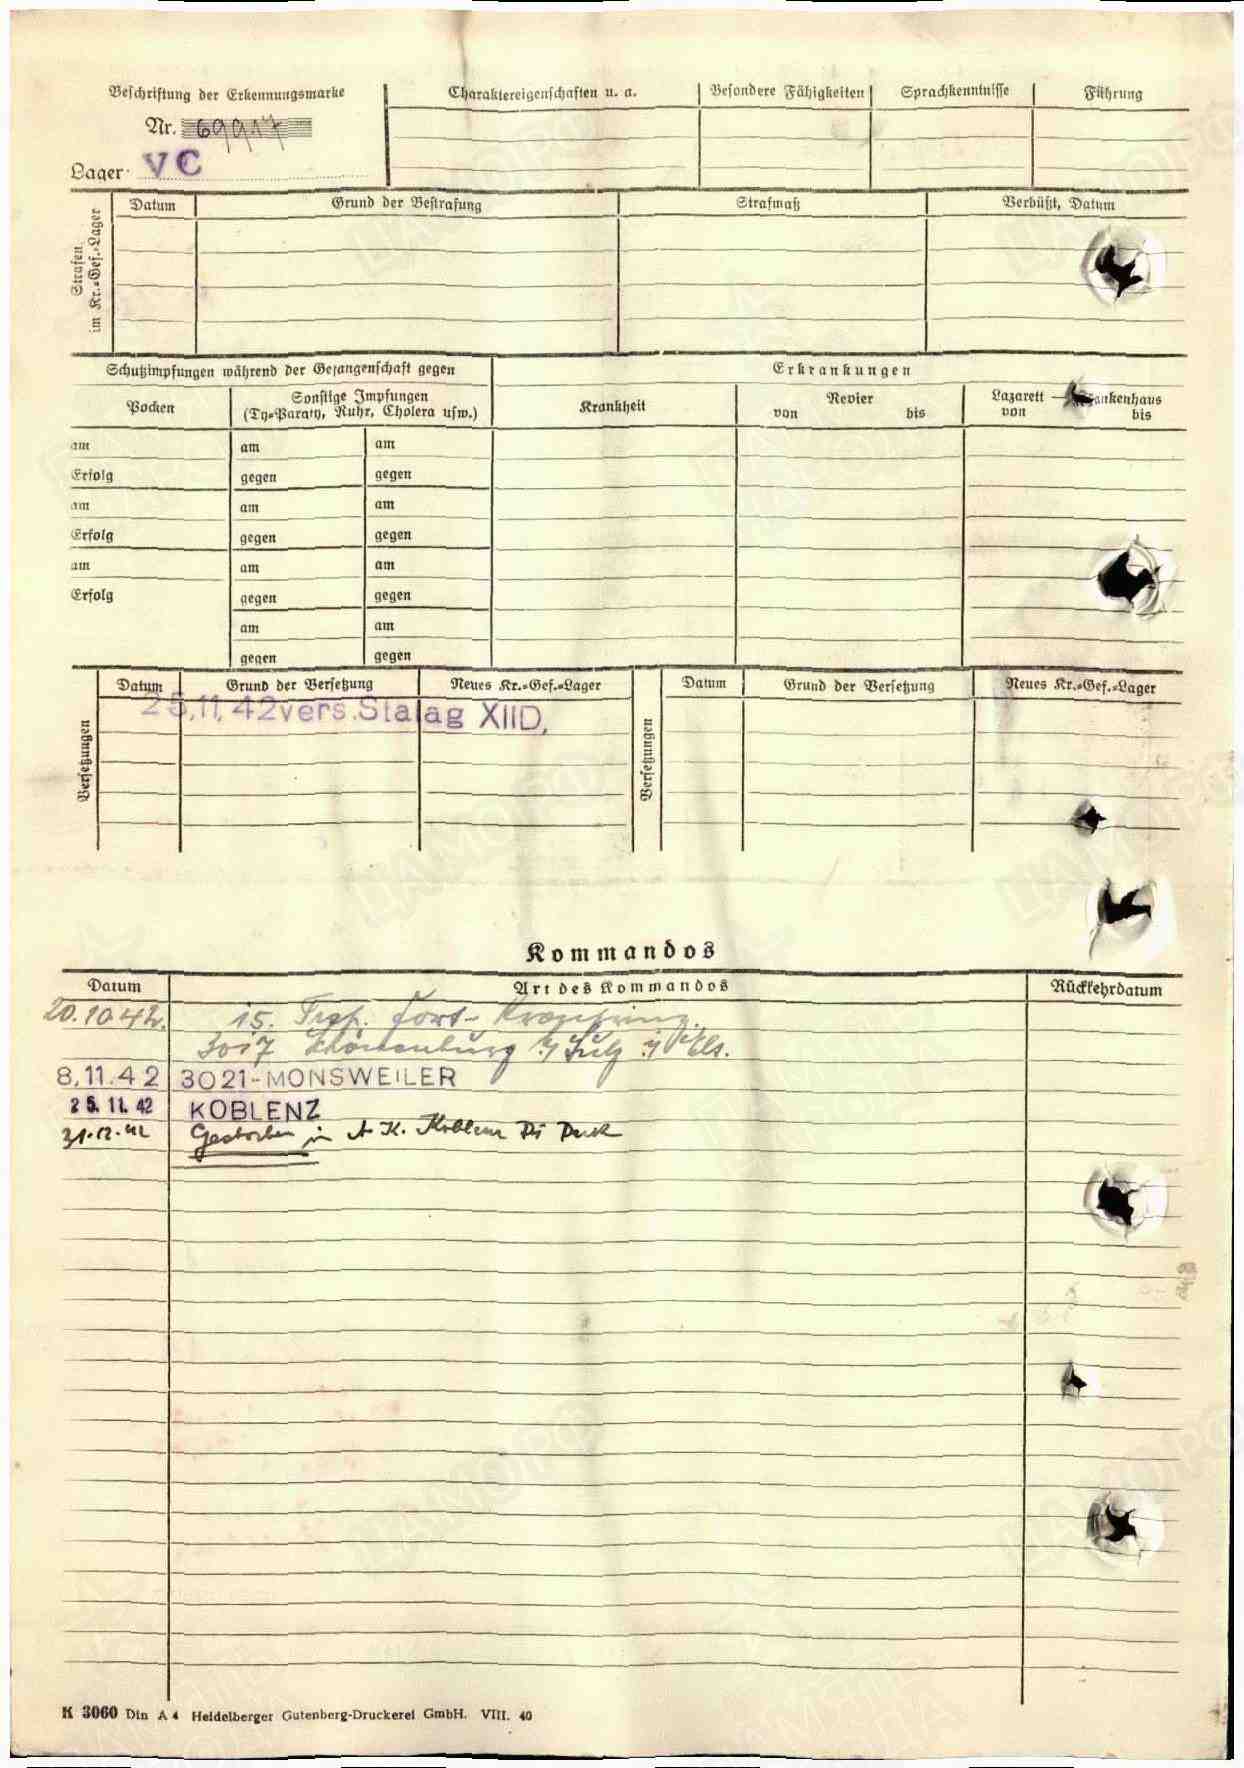 Beschriftung der Erkennungsmarke
Nr. 69917
Lager: V C
Charaktereigenschaften u. a.
Besondere Fähigkeiten
Sprachkenntnisse
Führung
Strafen im Kr.=Gef.=Lager
Datum
Grund der Bestrafung
Strafmaß
Verbüßt, Datum
Schutzimpfungen während der Gefangenschaft gegen
Erkrankungen
Pocken
Sonstige Impfungen
(Ty=Paraty, Ruhr, Cholera usw.)
Krankheit
Revier
von bis
Lazarett — Krankenhaus
von bis
am am am
Erfolg gegen gegen
am am am
Erfolg gegen gegen
am am am
Erfolg gegen gegen
am am
gegen gegen
Versetzungen
Datum Grund der Versetzung Neues Kr.=Gef.=Lager
25.11.42 vers. Stalag XIID,
Versetzungen
Datum Grund der Versetzung Neues Kr.=Gef.=Lager
Kommandos
Datum Art des Kommandos Rückkehrdatum
20.10.42. 15.
3017 Schönenburg Sulz Els.
8.11.42 3021-MONSWEILER
25.11.42 KOBLENZ
31.12.42 Gestorben in Koblenz
K 3060 Din A 4 Heidelberger Gutenberg-Druckerei GmbH. VIII. 40
ЦАМО РФ